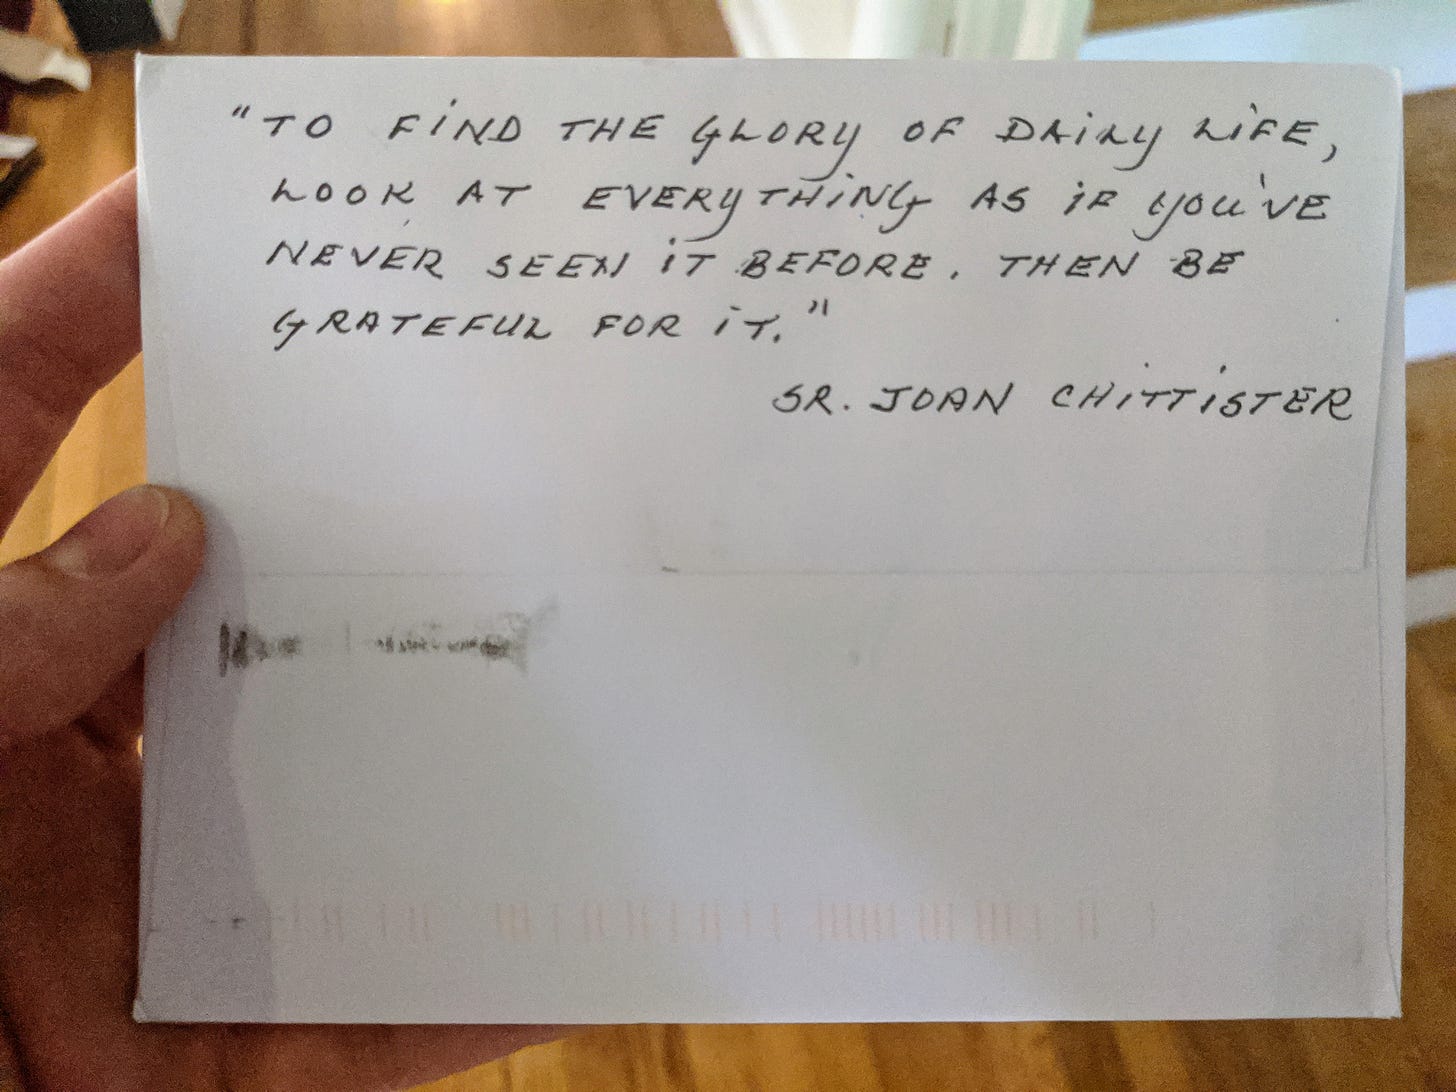 "TO FiND THE GLORY OF DAiLY LiFE,
LOOK AT EVERYTHiNG AS iF YOU'VE
NEVER SEEN iT BEFORE. THEN BE
GRATEFUL FOR iT."
SR. JOAN CHiTTiSTER